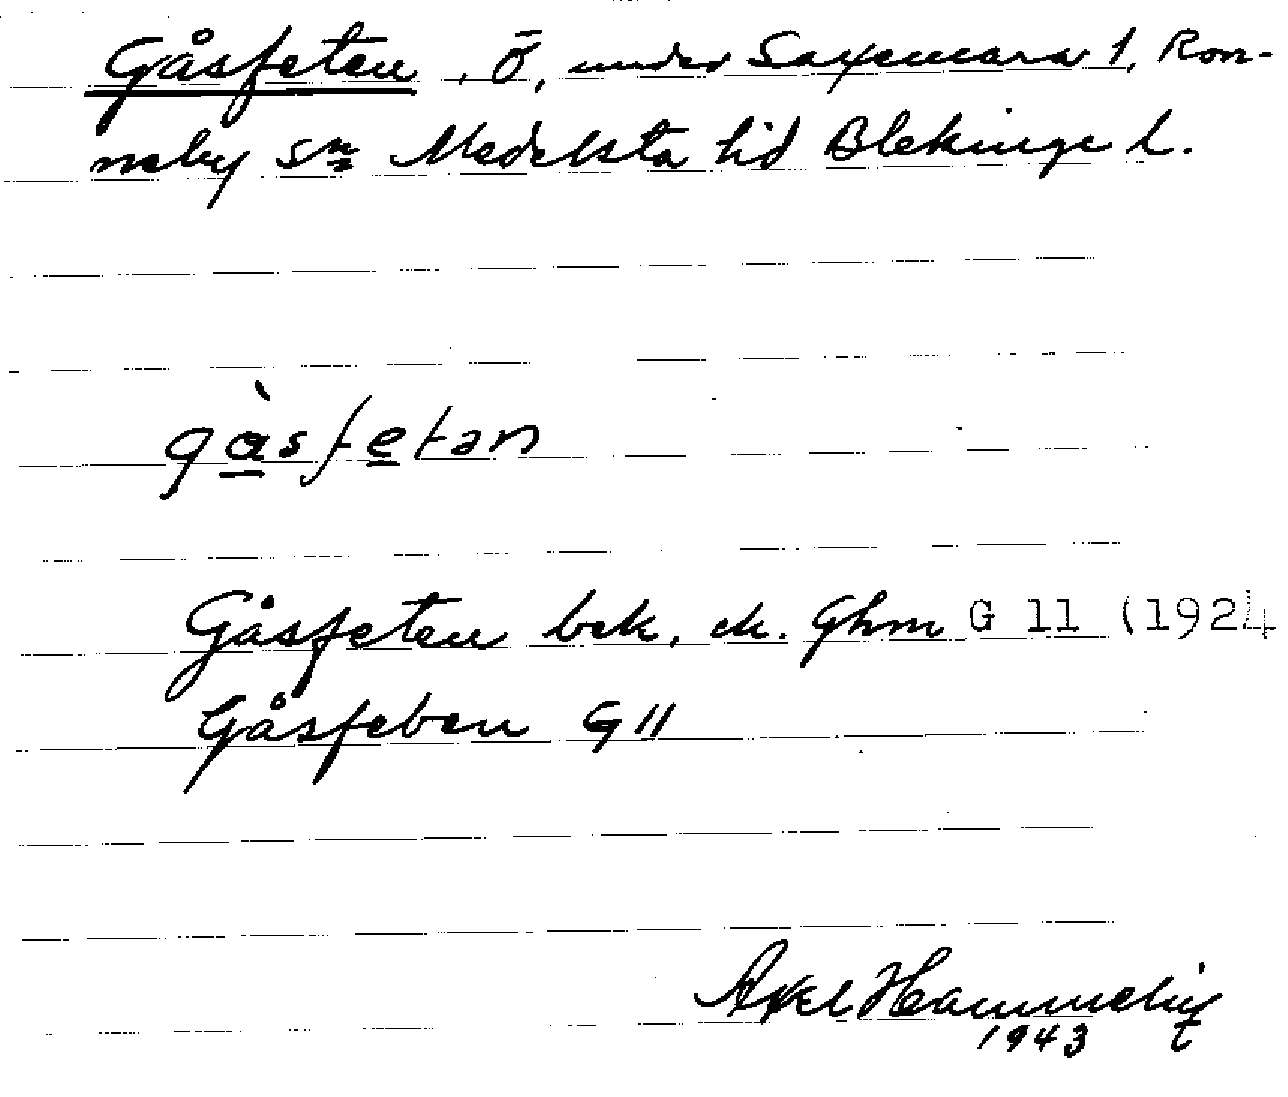 Gåsfeten, Ö, under Saxemara 1, Ron-
neby sn Medelsta hd Blekinge l.
gàsfetan
Gåsfeten bek, ek. Ghm G 11 (1924
Gåsfeben G 11
Axel Hammelin
1943